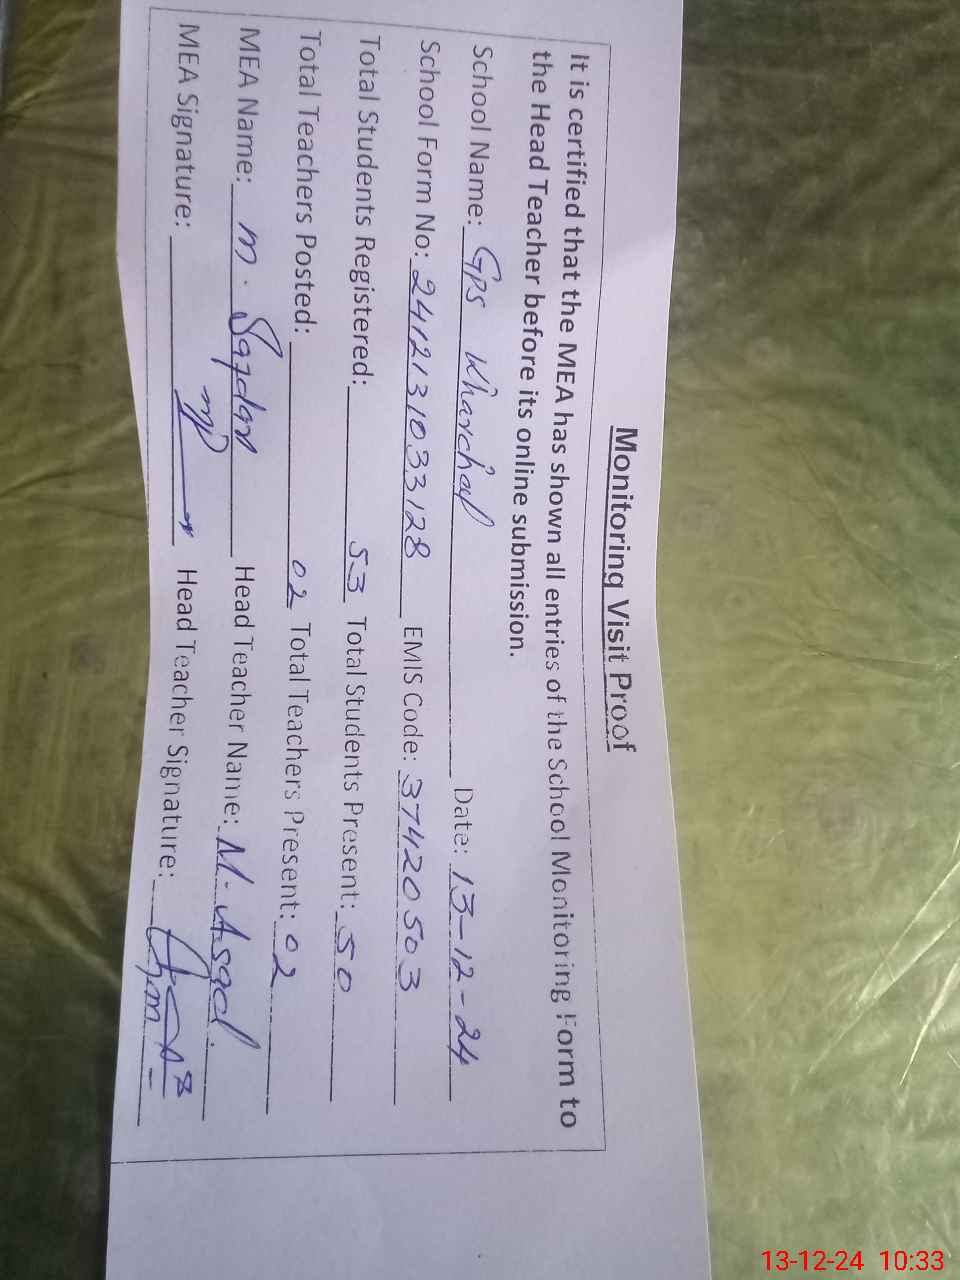 Monitoring Visit Proof
It is certified that the MEA has shown all entries of the School Monitoring Form to
the Head Teacher before its online submission.
School Name: GPS Kharchal Date: 13-12-24
School Form No: 2412131033128 EMIS Code: 37420503
Total Students Registered: 53 Total Students Present: 50
Total Teachers Posted: 02 Total Teachers Present: 02
MEA Name: M. Safdar Head Teacher Name: M. Asad
MEA Signature: Head Teacher Signature:
13-12-24 10:33